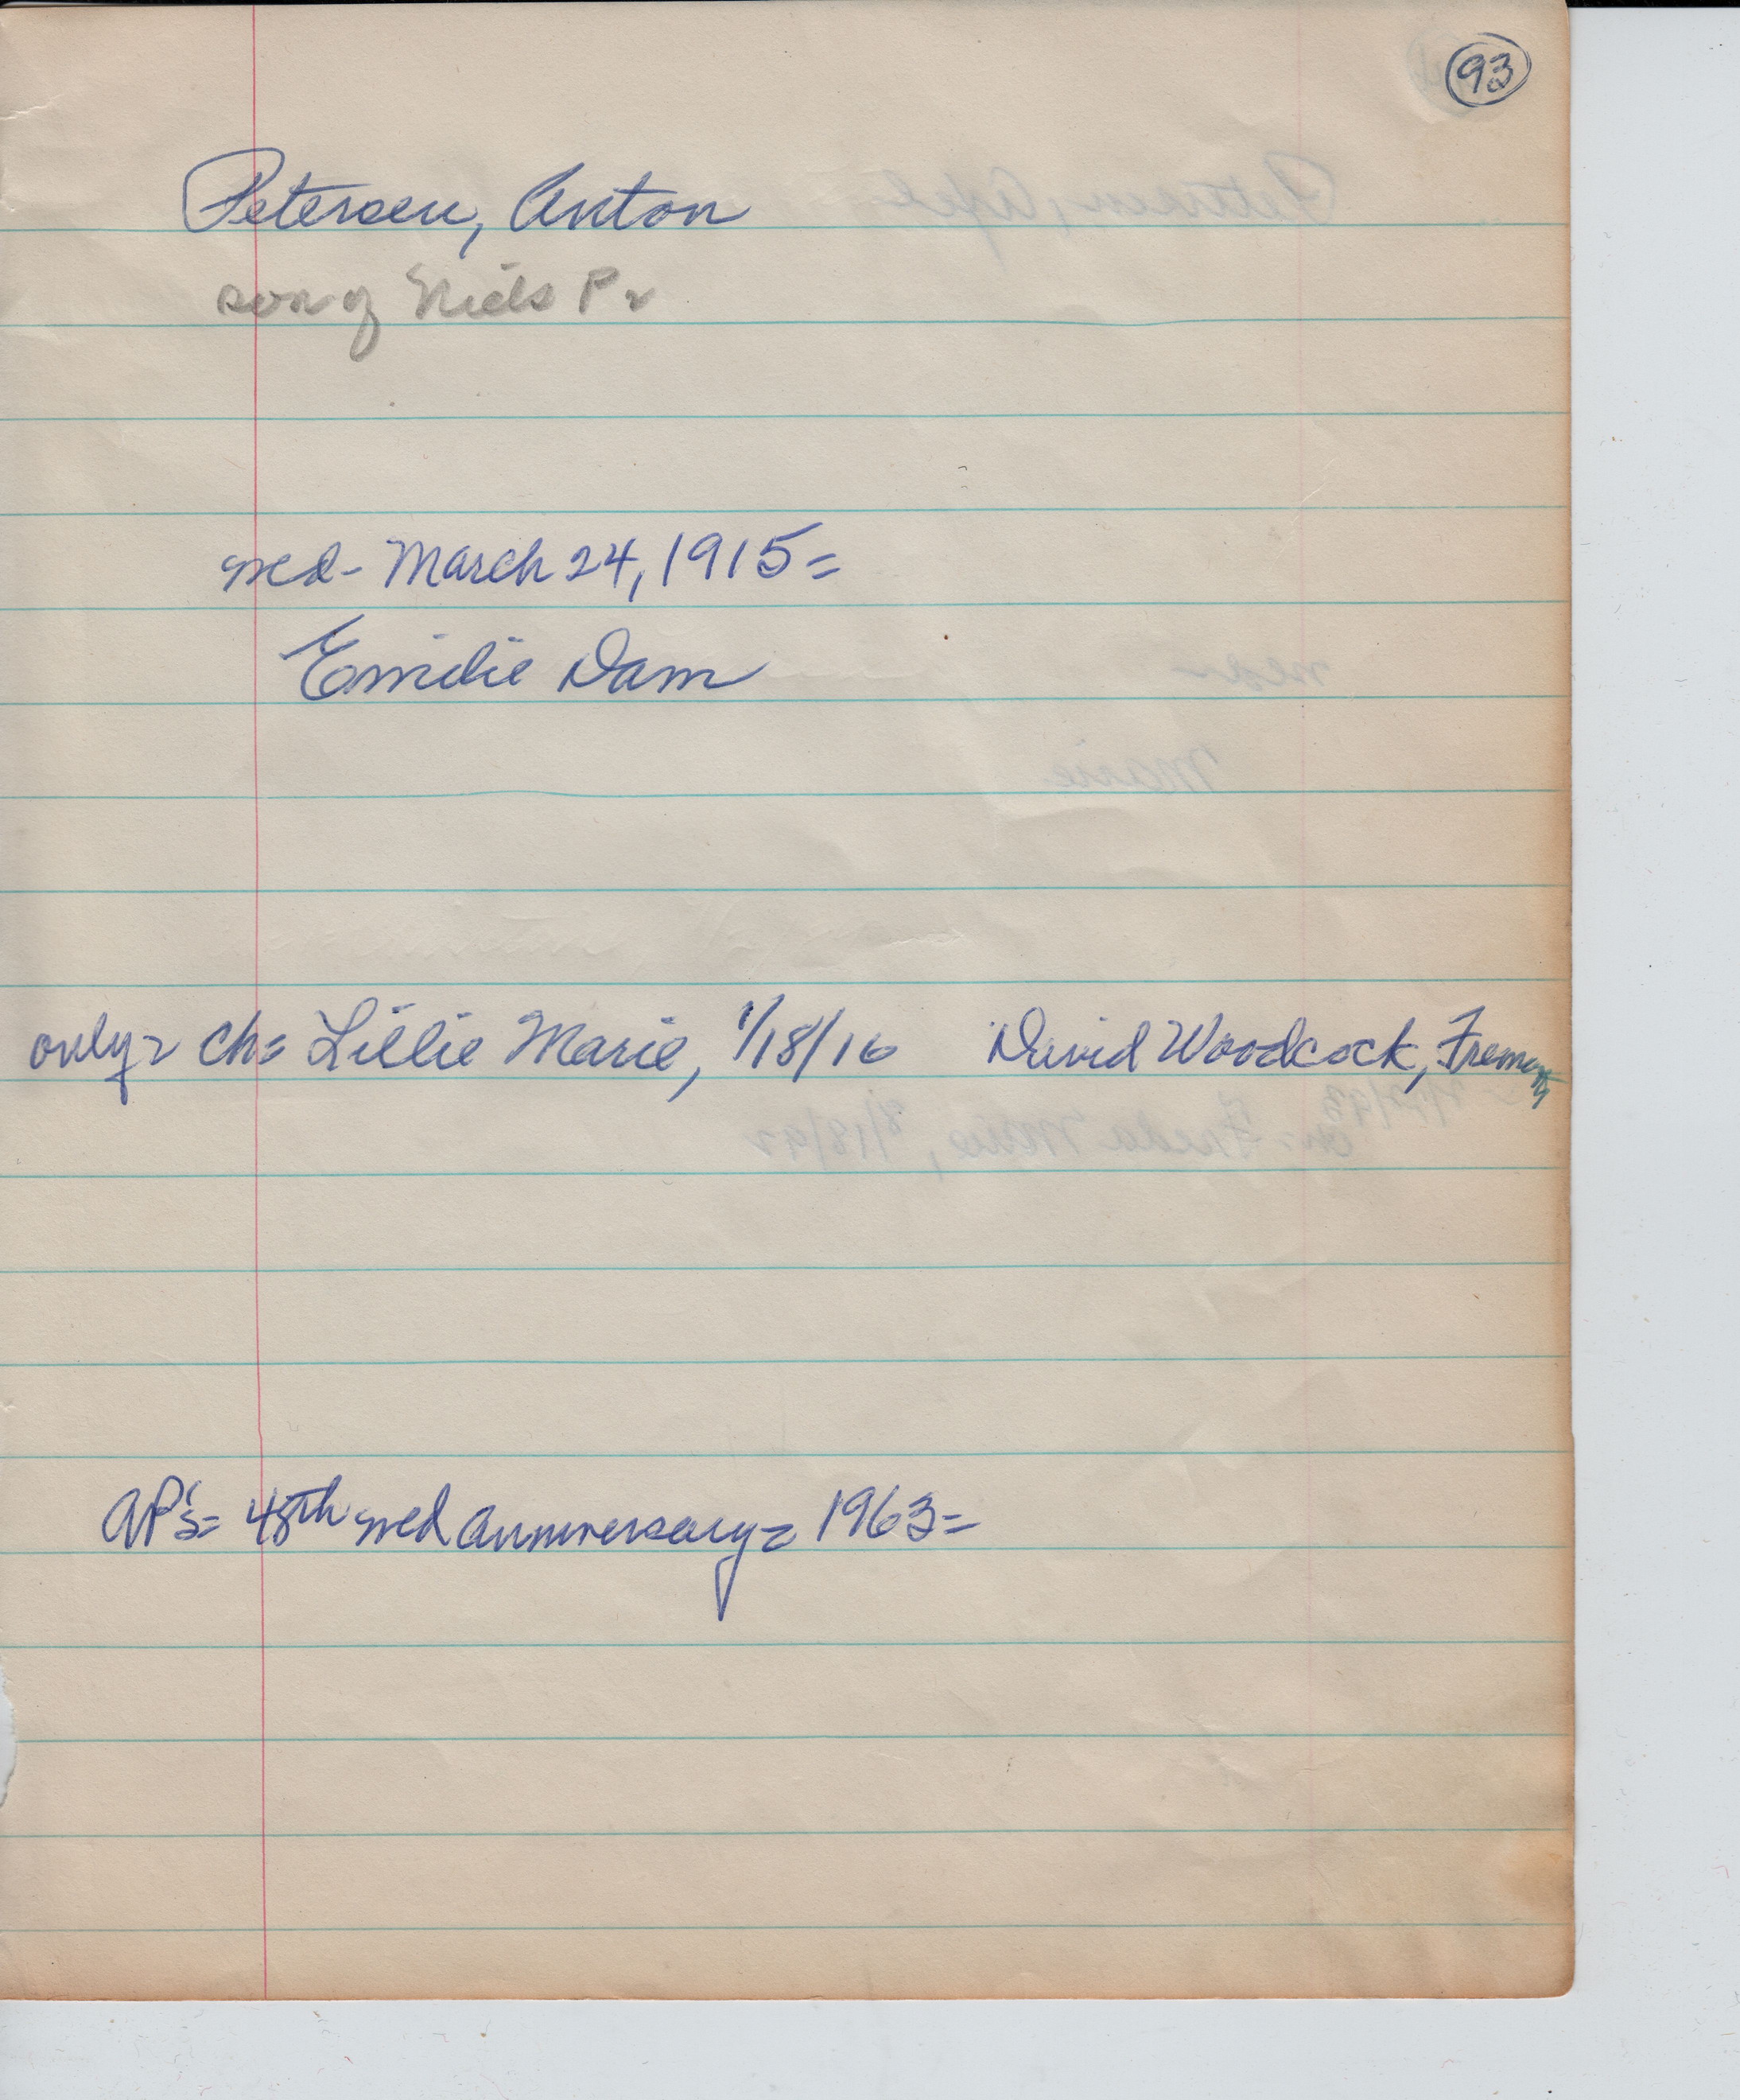 93
Petersen, Anton
son of Niels P-
wed- March 24, 1915=
Emilie Dam
only= ch= Lillie Marie, 1/18/16 David Woodcock, Fremont,
AP's= 48th wed anniversary= 1963=